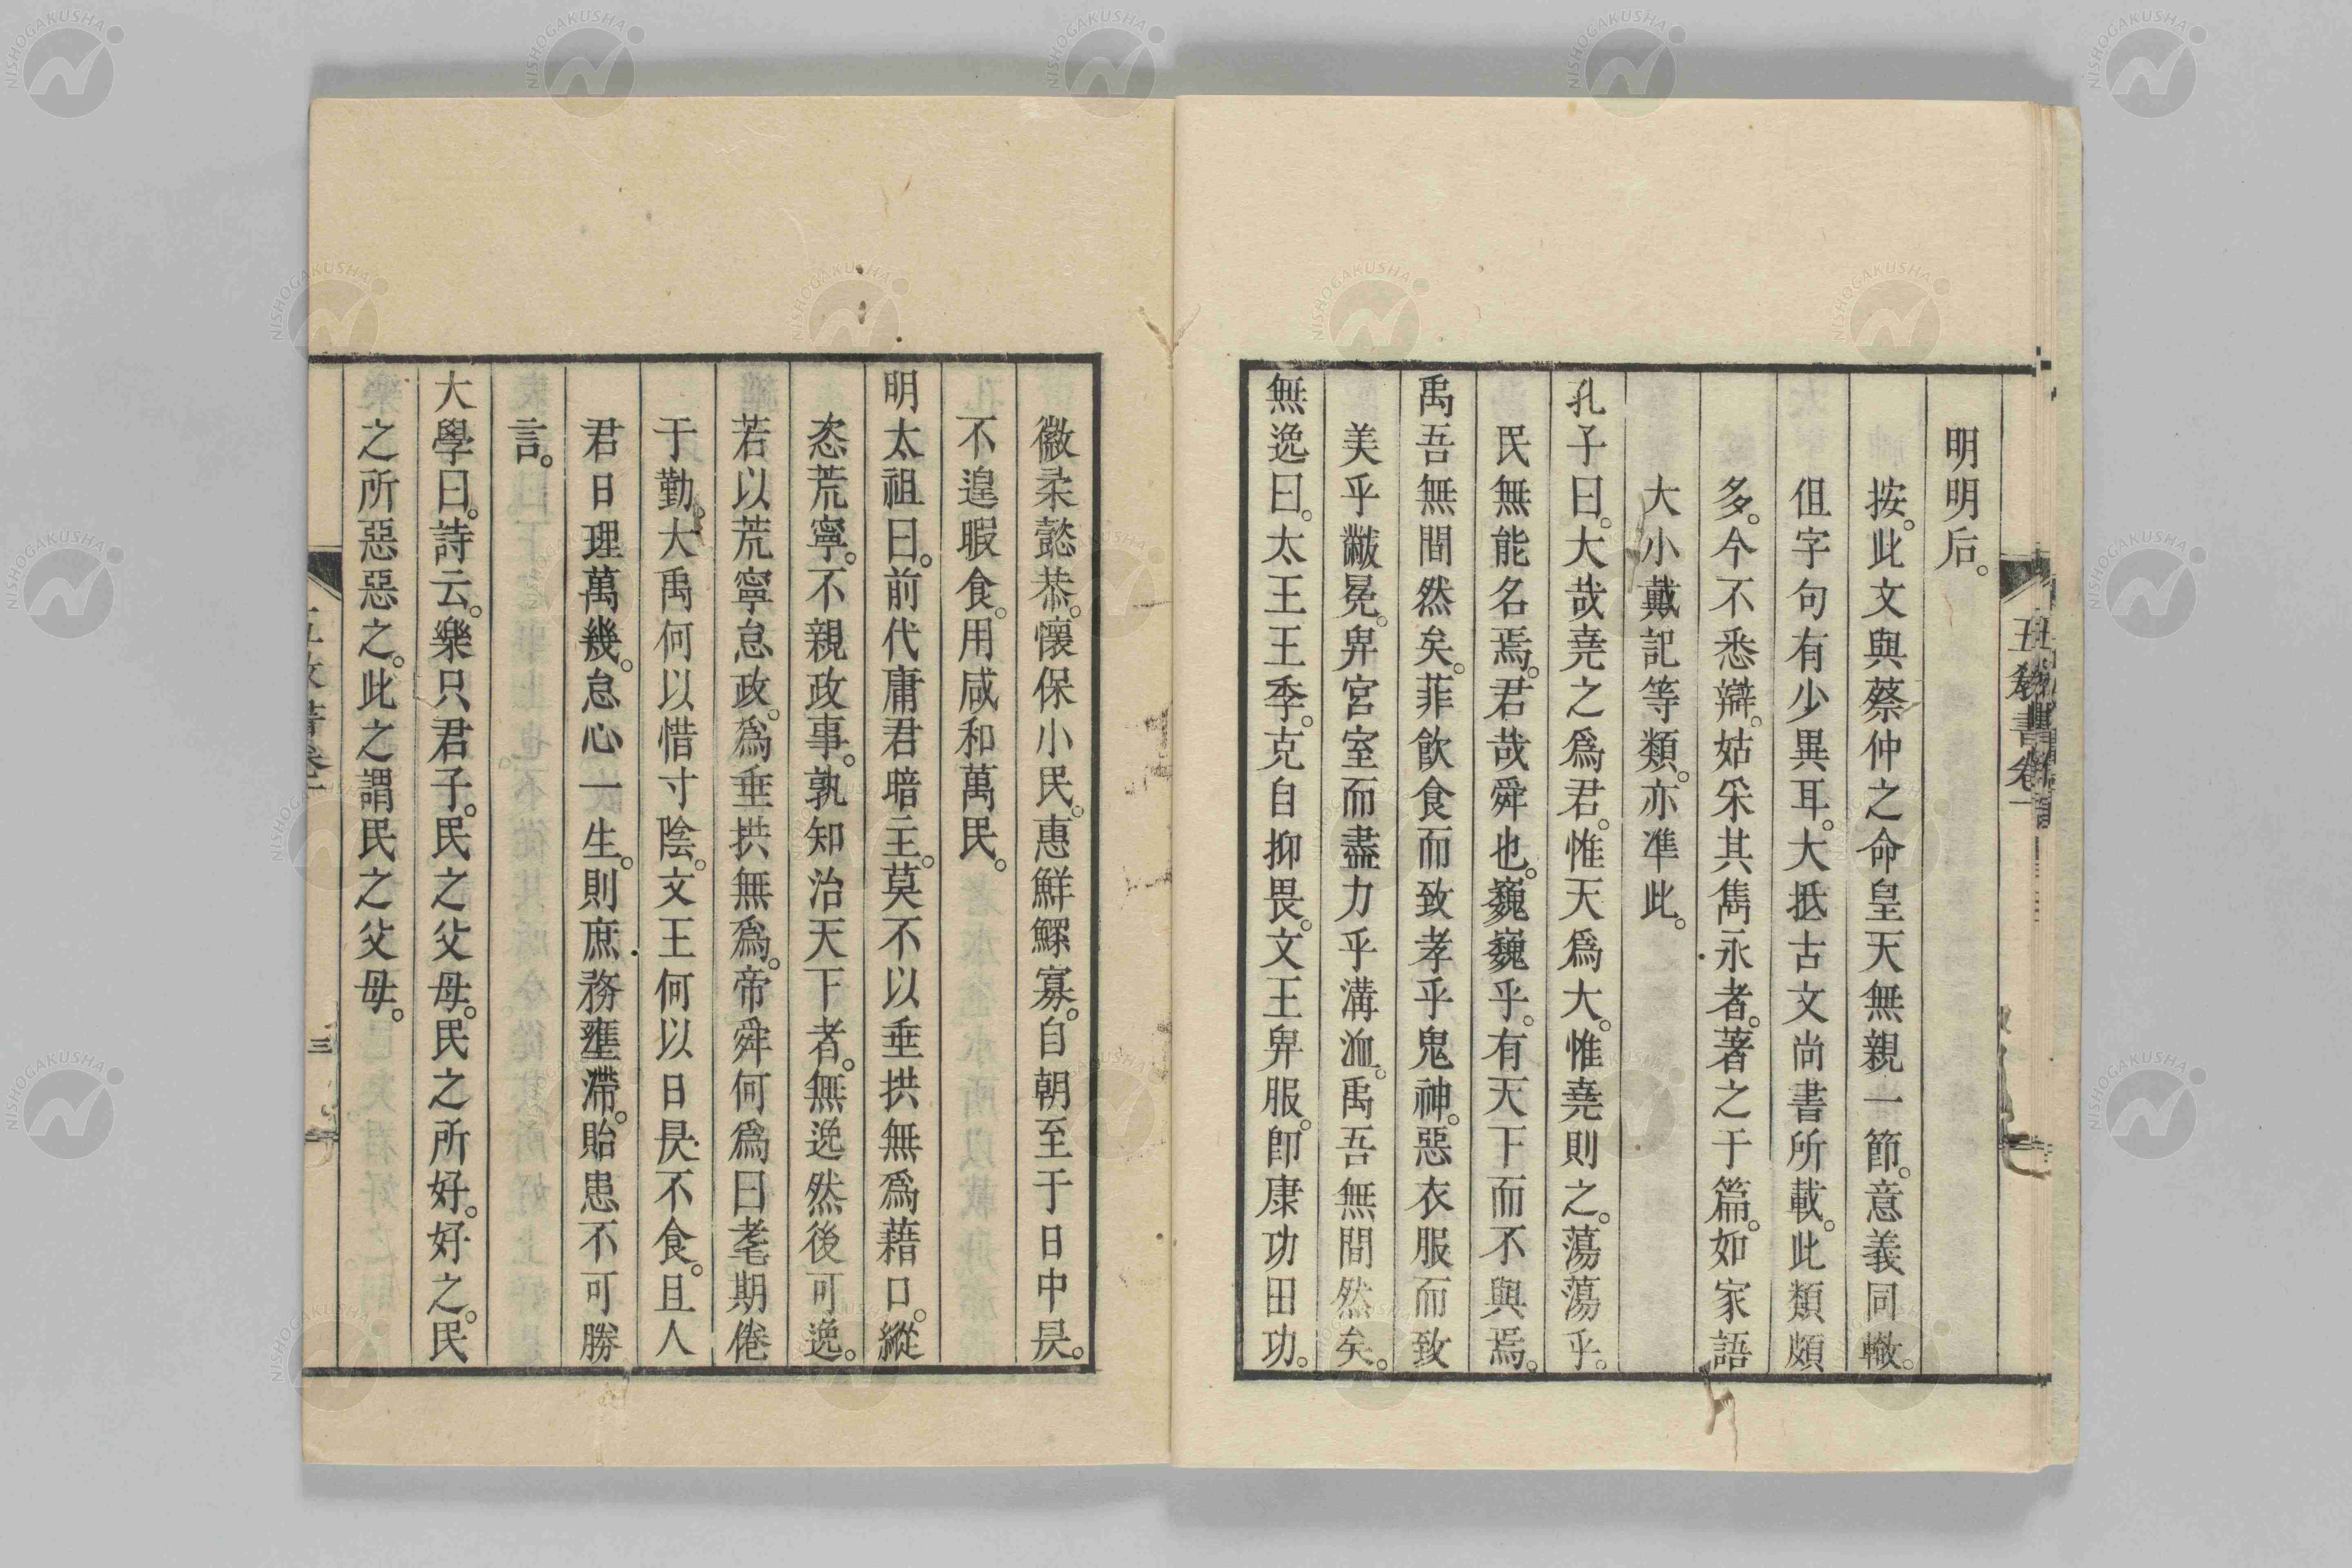 明明后。
按。此文與蔡仲之命皇天無親一節。意義同轍。
但字句有少異耳。大抵古文尚書所載。此類頗
多。今不悉辯。姑采其雋永者。著之于篇。如家語
大小戴記等類。亦準此。
孔子曰。大哉堯之爲君。惟天爲大。惟堯則之。蕩蕩乎。
民無能名焉。君哉舜也。巍巍乎。有天下而不與焉。
禹吾無間然矣。菲飲食而致孝乎鬼神。惡衣服而致
美乎黻冕。卑宮室而盡力乎溝洫。禹吾無間然矣。
無逸曰。太王王季。克自抑畏。文王卑服。卽康功田功。
徽柔懿恭。懷保小民。惠鮮鰥寡。自朝至于日中昃。
不遑暇食。用咸和萬民。
明太祖曰。前代庸君暗主。莫不以垂拱無爲藉口。縱
恣荒寧。不親政事。孰知治天下者。無逸然後可逸。
若以荒寧怠政。爲垂拱無爲。帝舜何爲曰耄期倦
于勤。大禹何以惜寸陰。文王何以日昃不食。且人
君日理萬幾。怠心一生。則庶務壅滯。貽患不可勝
言。
大學曰。詩云。樂只君子。民之父母。民之所好。好之。民
之所惡惡之。此之謂民之父母。
三
NISHOGAKUSHA